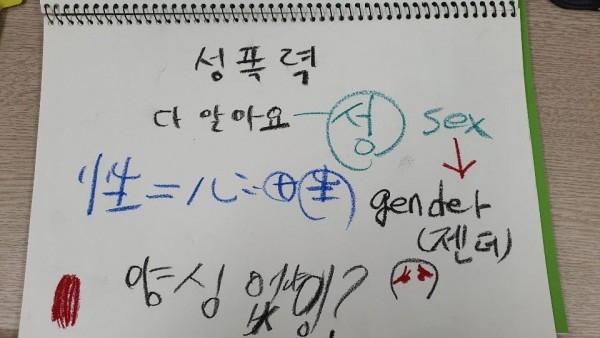 성폭력
다 알아요 성 sex
性 = 心 + (生)
gender
(젠더)